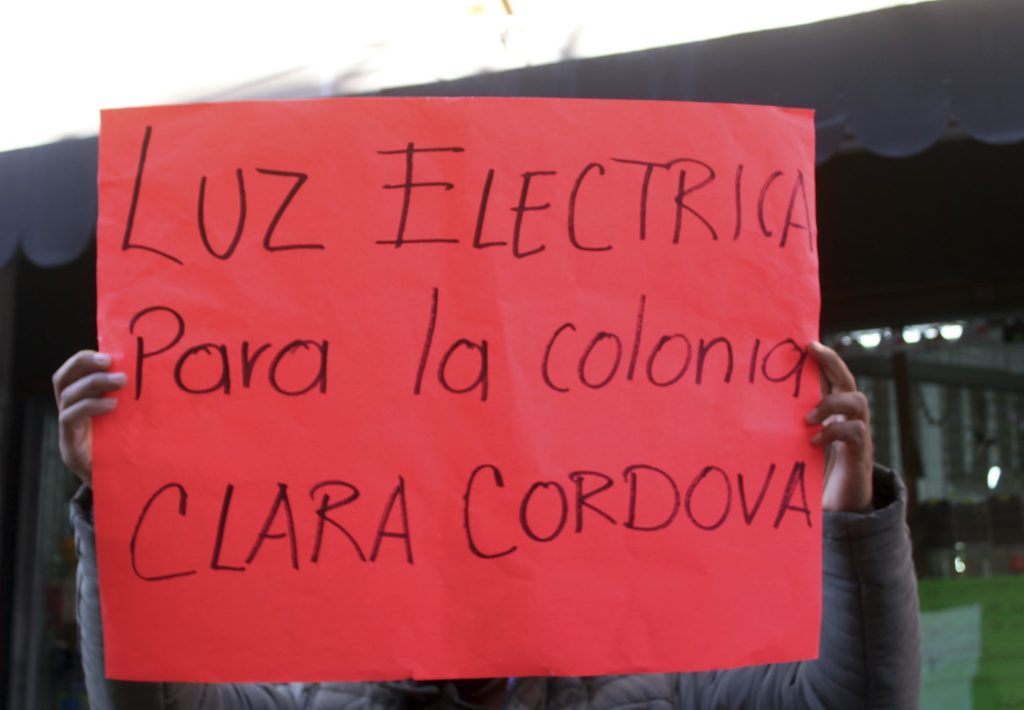 LUZ ELECTRICA
Para la colonia
CLARA CORDOVA